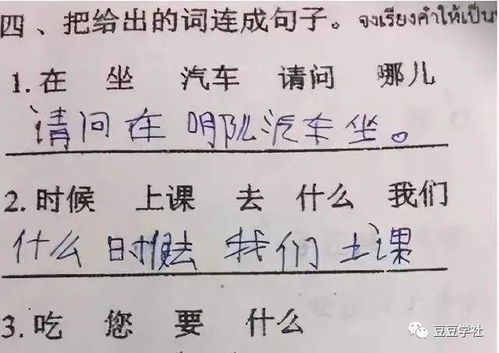 四、把给出的词连成句子。จงเรียงคำให้เป็น
1.在 坐 汽车 请问 哪儿
请问在哪儿汽车坐。
2.时候 上课 去 什么 我们
什么时候去我们上课
3.吃 您 要 什么
豆豆学社